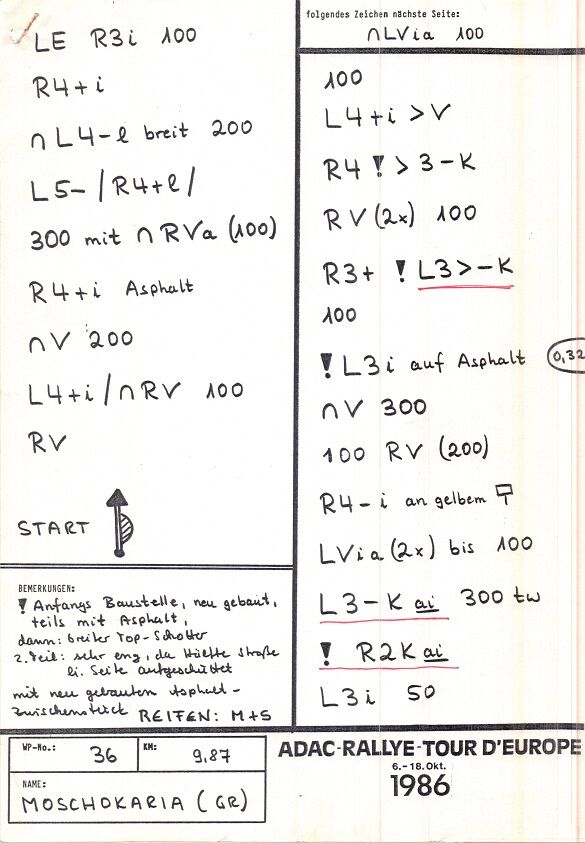 LE R3i 100
R4+i
∩ L4-l breit 200
L5- / R4+l /
300 mit ∩ RVa (100)
R4+i Asphalt
∩V 200
L4+i / ∩RV 100
RV
START
BEMERKUNGEN:
! Anfangs Baustelle, neu gebaut,
teils mit Asphalt,
dann: breiter Top-Schotter
2. Teil: sehr eng, da Hälfte Straße
li. Seite aufgeschüttet
mit neu gebauten Asphalt-
zwischenstück REIFEN: M+S
folgendes Zeichen nächste Seite:
∩LVia 100
100
L4+i >V
R4 ! > 3-K
RV (2x) 100
R3+ ! L3>-K
100
! L3i auf Asphalt 0,32
∩V 300
100 RV (200)
R4-i an gelbem
LVia (2x) bis 100
L3-K ai 300 tw
! R2K ai
L3i 50
WP-No.: 36 KM: 9,87
NAME:
MOSCHOKARIA (GR)
ADAC-RALLYE-TOUR D'EUROPE
6.-18. Okt.
1986